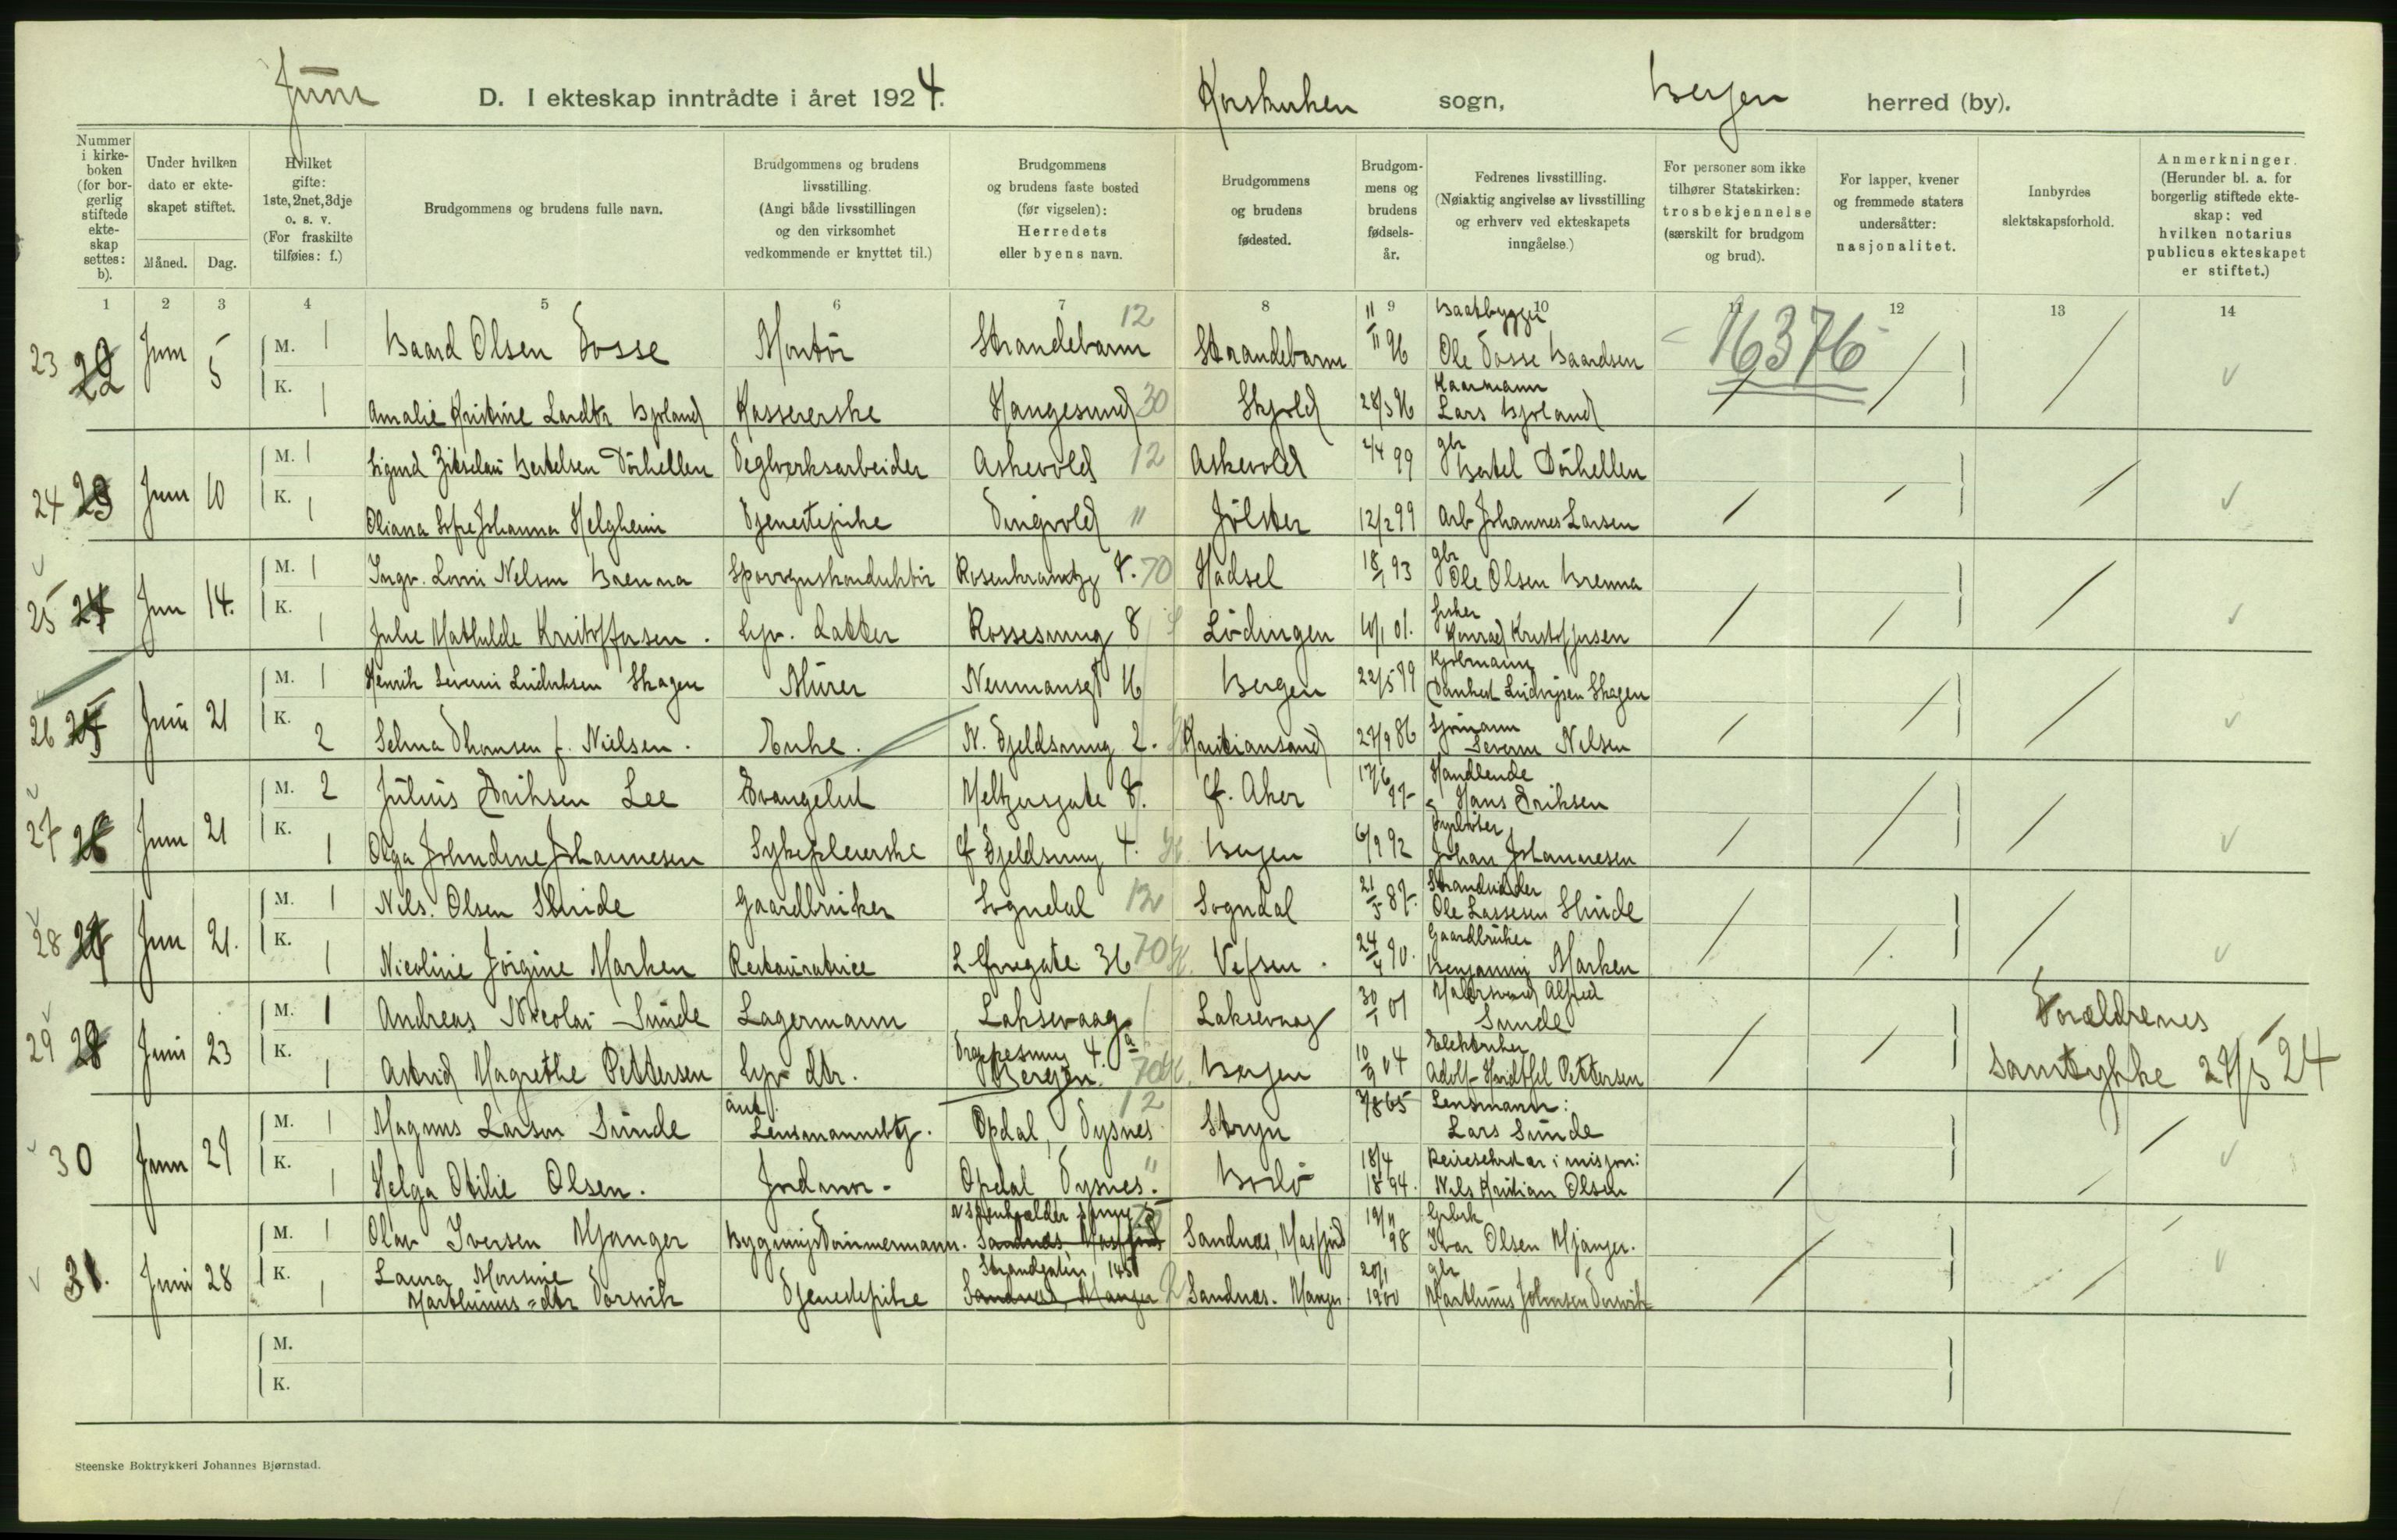 Juni D. I ekteskap inntrådte i året 1924. Korskirken sogn, Bergen herred (by).
Nummer i kirkeboken (for borgerlig stiftede ekteskap settes: b).
Under hvilken dato er ekteskapet stiftet.
Måned. Dag.
Hvilket gifte: 1ste, 2net, 3dje o. s. v. (For fraskilte tilføies: f.)
Brudgommens og brudens fulle navn.
Brudgommens og brudens livsstilling. (Angi både livsstillingen og den virksomhet vedkommende er knyttet til.)
Brudgommens og brudens faste bosted (før vigselen): Herredets eller byens navn.
Brudgommens og brudens fødested.
Brudgommens og brudens fødselsår.
Fedrenes livsstilling. (Nøiaktig angivelse av livsstilling og erhverv ved ekteskapets inngåelse.)
For personer som ikke tilhører Statskirken: trosbekjennelse (særskilt for brudgom og brud).
For lapper, kvener og fremmede staters undersåtter: nasjonalitet.
Innbyrdes slektskapsforhold.
Anmerkninger. (Herunder bl. a. for borgerlig stiftede ekteskap: ved hvilken notarius publicus ekteskapet er stiftet.)
1 2 3 4 5 6 7 8 9 10 11 12 13 14
23 22 Juni 5 M. 1 Baard Olsen Tosse Montör Strandebarm 12 Strandebarm 11/11 96 Baatbygger Ole Tosse Baardsen 16376
K. 1 Amalie Kristine Larsdtr Bjoland Kassererske Haugesund 30 Skjold 28/3 96 Lars Bjoland
24 23 Juni 10 M. 1 Sigurd Bertelsen Teglverksarbeider Askevold 12 Askevold 2/4 99 gbr Bertel
K. 1 Oliana Sofie Johanna Helgheim Tjenestepike Tingvold " Jölster 12/2 99 Arb Johannes Larsen
25 24 Juni 14. M. 1 Ingv. Nelson Brenna Rosenkrantzg 8. 70 Hadsel 18/1 93 gbr Ole Olsen Brenna
K. 1 Julie Mathilde Kristoffersen. hjv. datter 8 Lödingen 10/1 01. fisker Konrad Kristoffersen
26 25 Juni 21 M. 1 Henrik Severin Ludviksen Skagen Mürer Neumansgt 16 Bergen 22/5 99 Ludvigsen Skagen
K. 2 Selma Thomsen f. Nielsen. Enke. N. Fjeldsmug 2. Kristiansand 27/9 86 Sjömann Severin Nilsen
27 26 Juni 21 M. 2 Julius Eriksen Lee Evangelist Meltzersgate 8. f. Aker 17/6 97 Handlende Hans Eriksen
K. 1 Olga Johndine Johannesen Sykepleierske Ø Fjeldsmug 4. Bergen 6/9 92 Johan Johannesen
28 27 Juni 21. M. 1 Nils. Olsen Stuide Gaardbruker Sogndal 12 Sogndal 21/5 87. Strandsidder Ole Lassesen
K. 1 Nicoline Jörgine Marken Restauratrice 36 70 Vefsen. 24/4 90. Gaardbruker Benjamin Marken
29 28 Juni 23 M. 1 Andreas Nicolai Sunde Lagermann Laksevaag Laksevaag 30/1 01 Malersvend Alfred Sunde
K. 1 Astrid Magrethe Pettersen hjv dtr. 4.a Bergen. 70 Bergen 10/9 04 Elektriker Adolf Pettersen
Forældrenes samtykke 27/5 24
30 Juni 27 M. 1 Magnus Larsen Sunde Lensmannsbtj. Opdal, Tysnes 12 Stryn 7/8 65 Lensmann: Lars Sunde
K. 1 Helga Otilie Olsen. Jordmor. Opdal Tysnes. " Bodö 18/4 1894. Reisesekretær i misjon: Nils Kristian Olsen
31. Juni 28 M. 1 Olav Iversen Mjanger Bygningstömmermann. Sandnes, Masfjord Sandnes, Masfjord 19/11 98 Gbrk Ivar Olsen Mjanger.
K. 1 Laura Monsine Marthinus=dtr Dorsvik Tjenestepike Strandgaten 145 Sandnes, Manger Sandnes. Manger 20/1 1900 gbr Marthinus Johnsen Dorsvik
M.
K.
Steenske Boktrykkeri Johannes Bjørnstad.